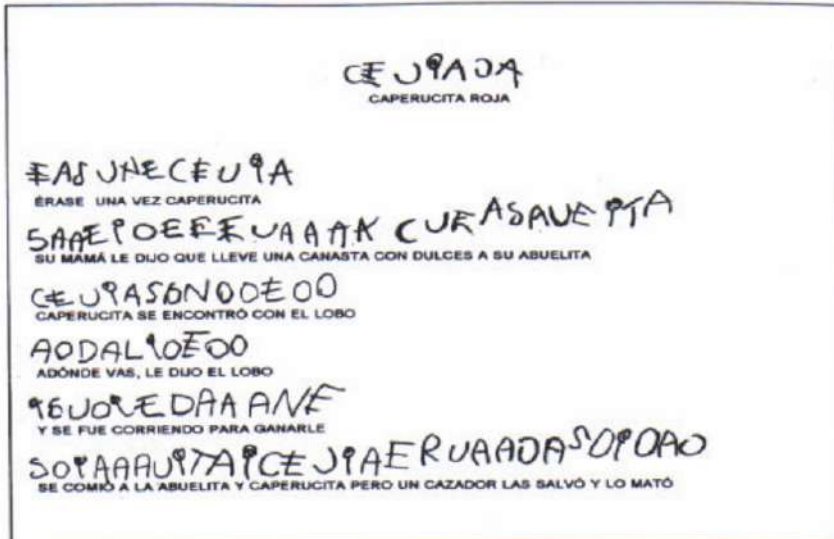 CEUIADA
CAPERUCITA ROJA
EASUNECEUIA
ÉRASE UNA VEZ CAPERUCITA
SAAEIOEEEUAAAK CUEASAUEITA
SU MAMÁ LE DIJO QUE LLEVE UNA CANASTA CON DULCES A SU ABUELITA
CEUIASONOOEOO
CAPERUCITA SE ENCONTRÓ CON EL LOBO
AODALIOEOO
ADÓNDE VAS, LE DIJO EL LOBO
Y SE FUE CORRIENDO PARA GANARLE
SE COMIÓ A LA ABUELITA Y CAPERUCITA PERO UN CAZADOR LAS SALVÓ Y LO MATÓ